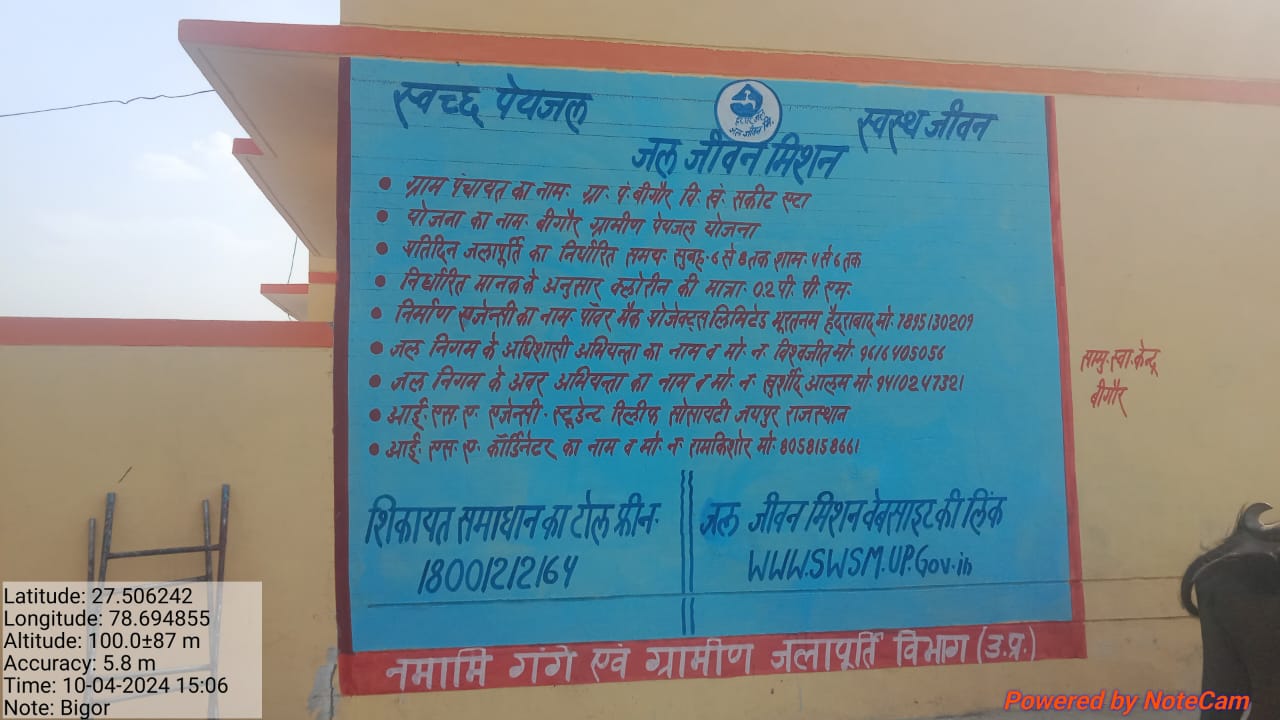 स्वच्छ पेयजल
स्वस्थ जीवन
हर घर जल
जल जीवन मि.
जल जीवन मिशन
• ग्राम पंचायत का नाम- ग्रा· पं· बीगौर वि· खं· सकीट एटा
• योजना का नाम- बीगौर ग्रामीण पेयजल योजना
• प्रतिदिन जलापूर्ति का निर्धारित समय- सुबह- 6 से 8 तक शाम- 4 से 6 तक
• निर्धारित मानक के अनुसार क्लोरीन की मात्रा- 0.2 पी· पी· एम·
• निर्माण एजेन्सी का नाम- पॉवर मैक प्रोजेक्ट्स लिमिटेड भूरतनम हैदराबाद मो· 7895130209
• जल निगम के अधिशासी अभियन्ता का नाम व मो· न· विश्वजीत मो· 9616405056
• जल निगम के अवर अभियन्ता का नाम व मो· न· खुर्शीद आलम मो· 9410247321
• आई· एस· ए· एजेन्सी - स्टूडेन्ट रिलीफ सोसायटी जयपुर राजस्थान
• आई· एस· ए· कॉर्डिनेटर का नाम व मो· न· रामकिशोर मो· 8058158661
शिकायत समाधान का टोल फ्री न·
18001212164
जल जीवन मिशन वेबसाइट की लिंक
WWW.SWSM.UP.Gov.in
नमामि गंगे एवं ग्रामीण जलापूर्ति विभाग (उ.प्र.)
सामु· स्वा· केन्द्र
बीगौर
Latitude: 27.506242
Longitude: 78.694855
Altitude: 100.0±87 m
Accuracy: 5.8 m
Time: 10-04-2024 15:06
Note: Bigor
Powered by NoteCam